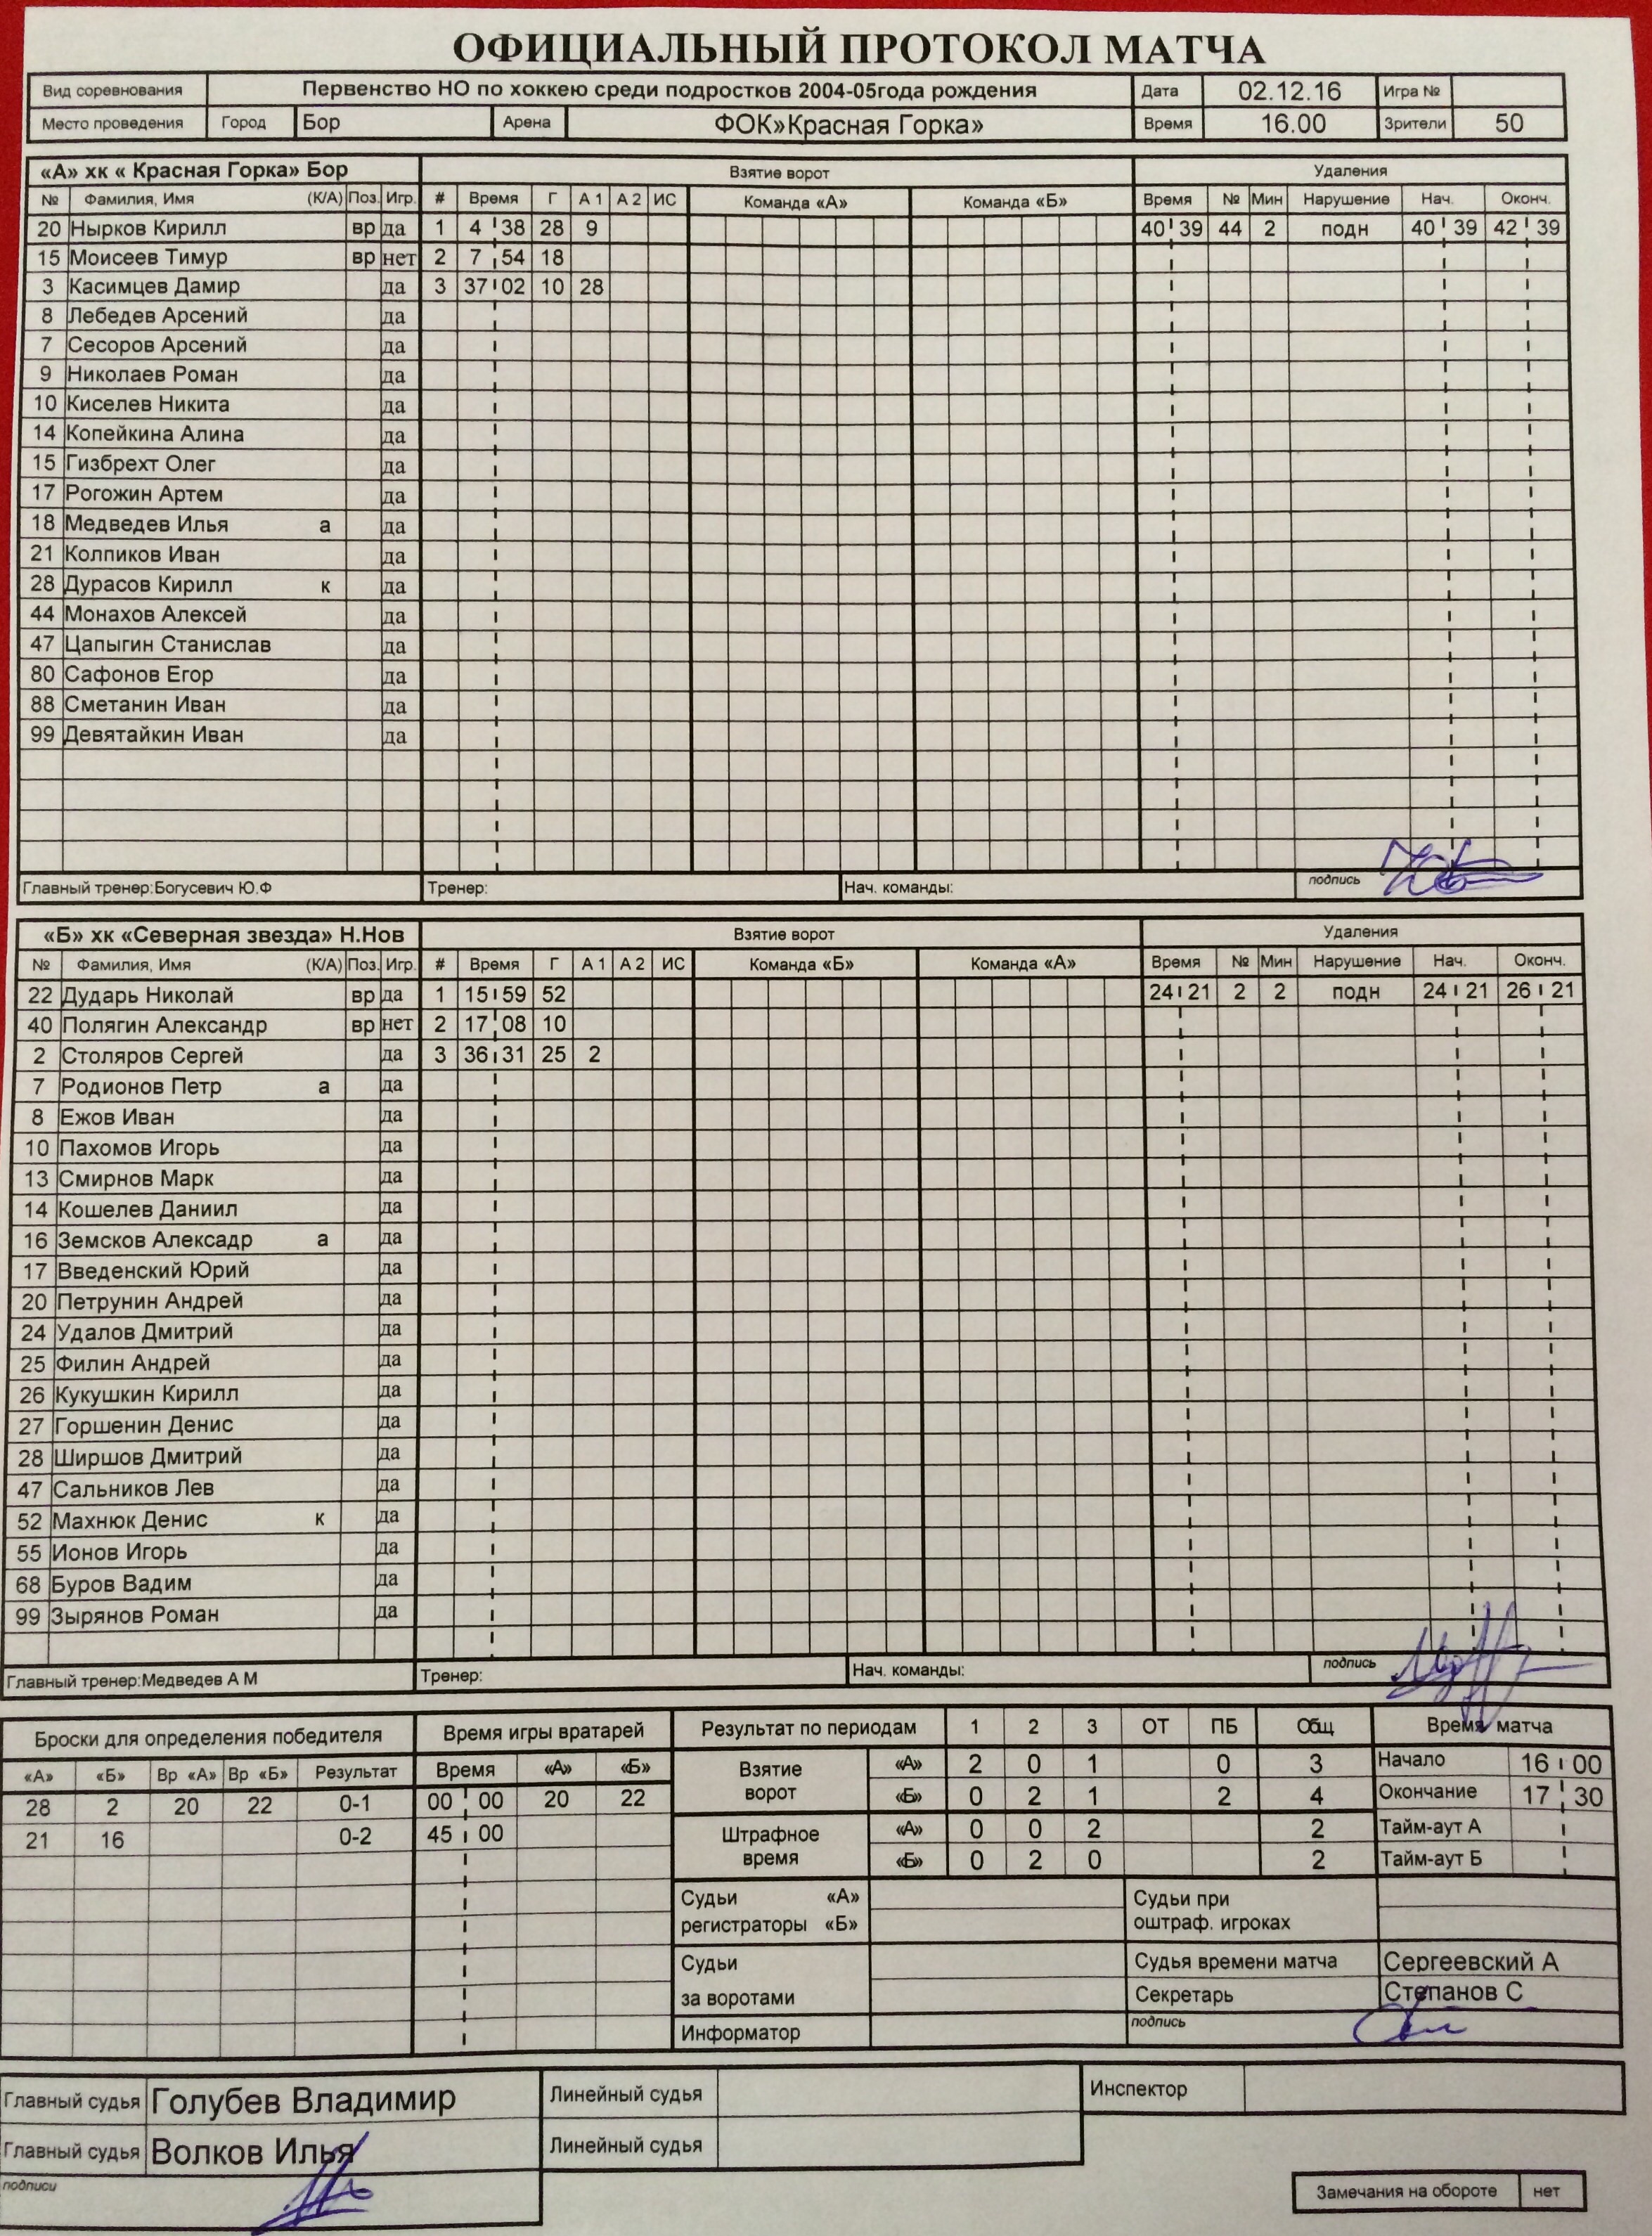 ОФИЦИАЛЬНЫЙ ПРОТОКОЛ МАТЧА
Вид соревнования Первенство НО по хоккею среди подростков 2004-05года рождения Дата 02.12.16 Игра №
Место проведения Город Бор Арена ФОК»Красная Горка» Время 16.00 Зрители 50
«А» хк « Красная Горка» Бор Взятие ворот Удаления
№ Фамилия, Имя (К/А) Поз. Игр. # Время Г А 1 А 2 ИС Команда «А» Команда «Б» Время № Мин Нарушение Нач. Оконч.
20 Нырков Кирилл вр да 1 4 38 28 9 40 39 44 2 подн 40 39 42 39
15 Моисеев Тимур вр нет 2 7 54 18
3 Касимцев Дамир да 3 37 02 10 28
8 Лебедев Арсений да
7 Сесоров Арсений да
9 Николаев Роман да
10 Киселев Никита да
14 Копейкина Алина да
15 Гизбрехт Олег да
17 Рогожин Артем да
18 Медведев Илья а да
21 Колпиков Иван да
28 Дурасов Кирилл к да
44 Монахов Алексей да
47 Цапыгин Станислав да
80 Сафонов Егор да
88 Сметанин Иван да
99 Девятайкин Иван да
Главный тренер:Богусевич Ю.Ф Тренер: Нач. команды: подпись
«Б» хк «Северная звезда» Н.Нов Взятие ворот Удаления
№ Фамилия, Имя (К/А) Поз. Игр. # Время Г А 1 А 2 ИС Команда «Б» Команда «А» Время № Мин Нарушение Нач. Оконч.
22 Дударь Николай вр да 1 15 59 52 24 21 2 2 подн 24 21 26 21
40 Полягин Александр вр нет 2 17 08 10
2 Столяров Сергей да 3 36 31 25 2
7 Родионов Петр а да
8 Ежов Иван да
10 Пахомов Игорь да
13 Смирнов Марк да
14 Кошелев Даниил да
16 Земсков Алексадр а да
17 Введенский Юрий да
20 Петрунин Андрей да
24 Удалов Дмитрий да
25 Филин Андрей да
26 Кукушкин Кирилл да
27 Горшенин Денис да
28 Ширшов Дмитрий да
47 Сальников Лев да
52 Махнюк Денис к да
55 Ионов Игорь да
68 Буров Вадим да
99 Зырянов Роман да
Главный тренер:Медведев А М Тренер: Нач. команды: подпись
Броски для определения победителя Время игры вратарей Результат по периодам 1 2 3 ОТ ПБ Общ Время матча
«А» «Б» Вр «А» Вр «Б» Результат Время «А» «Б» Взятие ворот «А» 2 0 1 0 3 Начало 16 00
28 2 20 22 0-1 00 00 20 22 «Б» 0 2 1 2 4 Окончание 17 30
21 16 0-2 45 00 Штрафное время «А» 0 0 2 2 Тайм-аут А
«Б» 0 2 0 2 Тайм-аут Б
Судьи «А» Судьи при
регистраторы «Б» оштраф. игроках
Судьи Судья времени матча Сергеевский А
за воротами Секретарь Степанов С
Информатор подпись
Главный судья Голубев Владимир Линейный судья Инспектор
Главный судья Волков Илья Линейный судья
подписи
Замечания на обороте нет